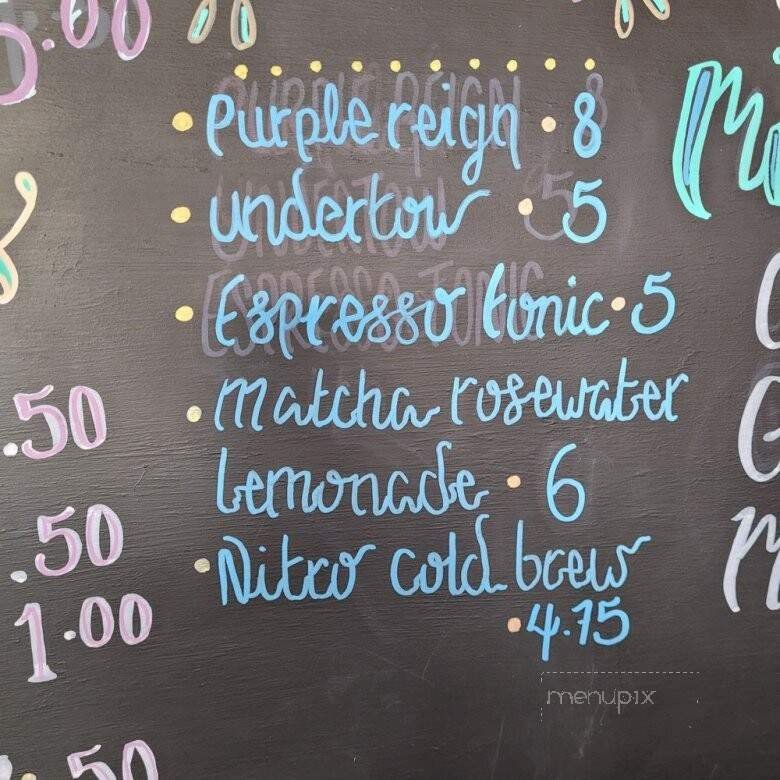 .00
Purple reign • 8
undertow • 5
Espresso tonic • 5
.50
Matcha rosewater
Lemonade • 6
.50
Nitro cold brew
1.00
• 4.75
menupix
.50